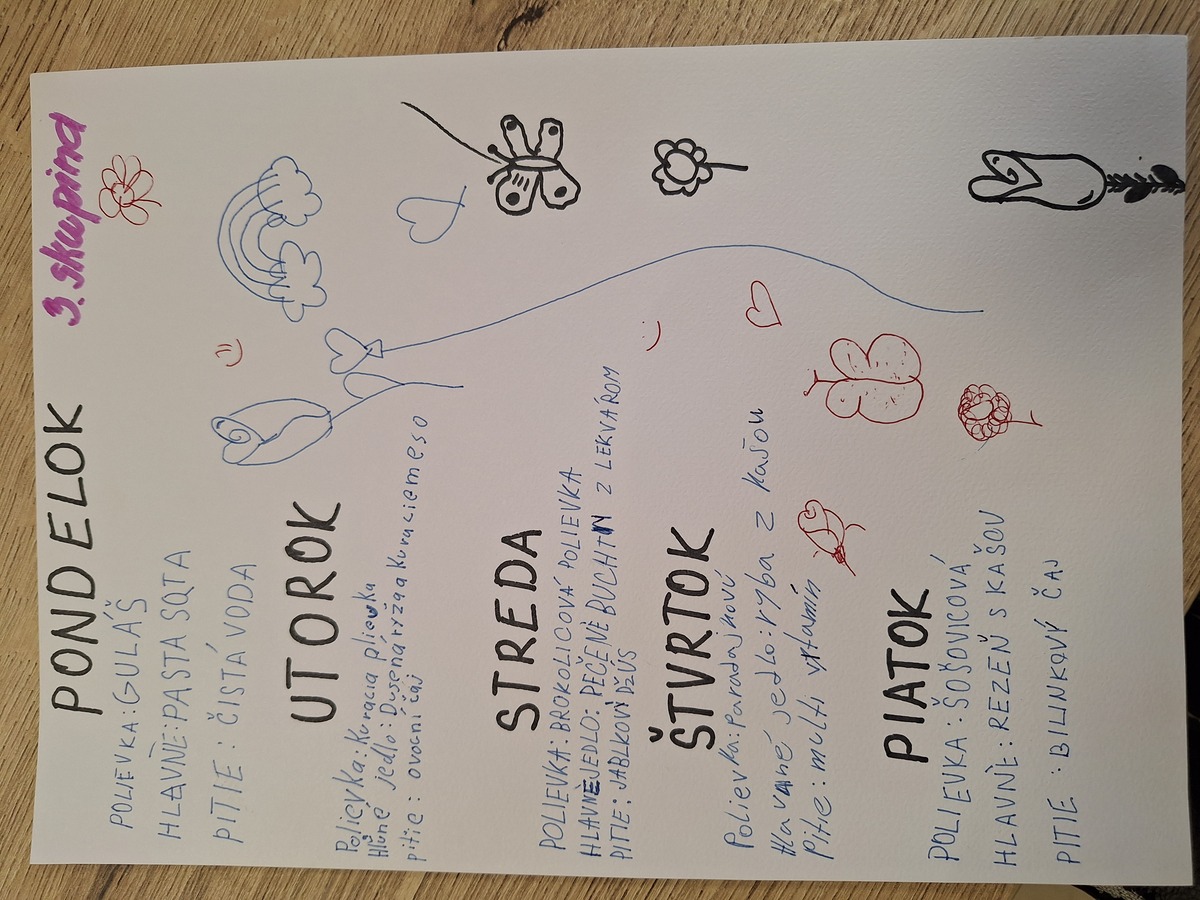 3. skupina
PONDELOK
POLIEVKA: GULÁŠ
HLAVNĚ: PASTA SQTA
PITIE: ČISTÁ VODA
UTOROK
Polievka: Kuracia plievka
Hlvné jedlo: Dusená ryža a kuracie meso
pitie: ovocní čaj
STREDA
POLIEVKA: BROKOLICOVÁ POLIEVKA
HLAVNÉ JEDLO: PEČENÉ BUCHTY Z LEKVÁROM
PITIE: JABLKOVÍ DŽÚS
ŠTVRTOK
Polievka: Paradajková
Hlavné jedlo: ryba z kašou
Pitie: multi vitamín
PIATOK
POLIEVKA: ŠOŠOVICOVÁ
HLAVNÉ: REZEŇ S KAŠOU
PITIE: BILINKOVÝ ČAJ